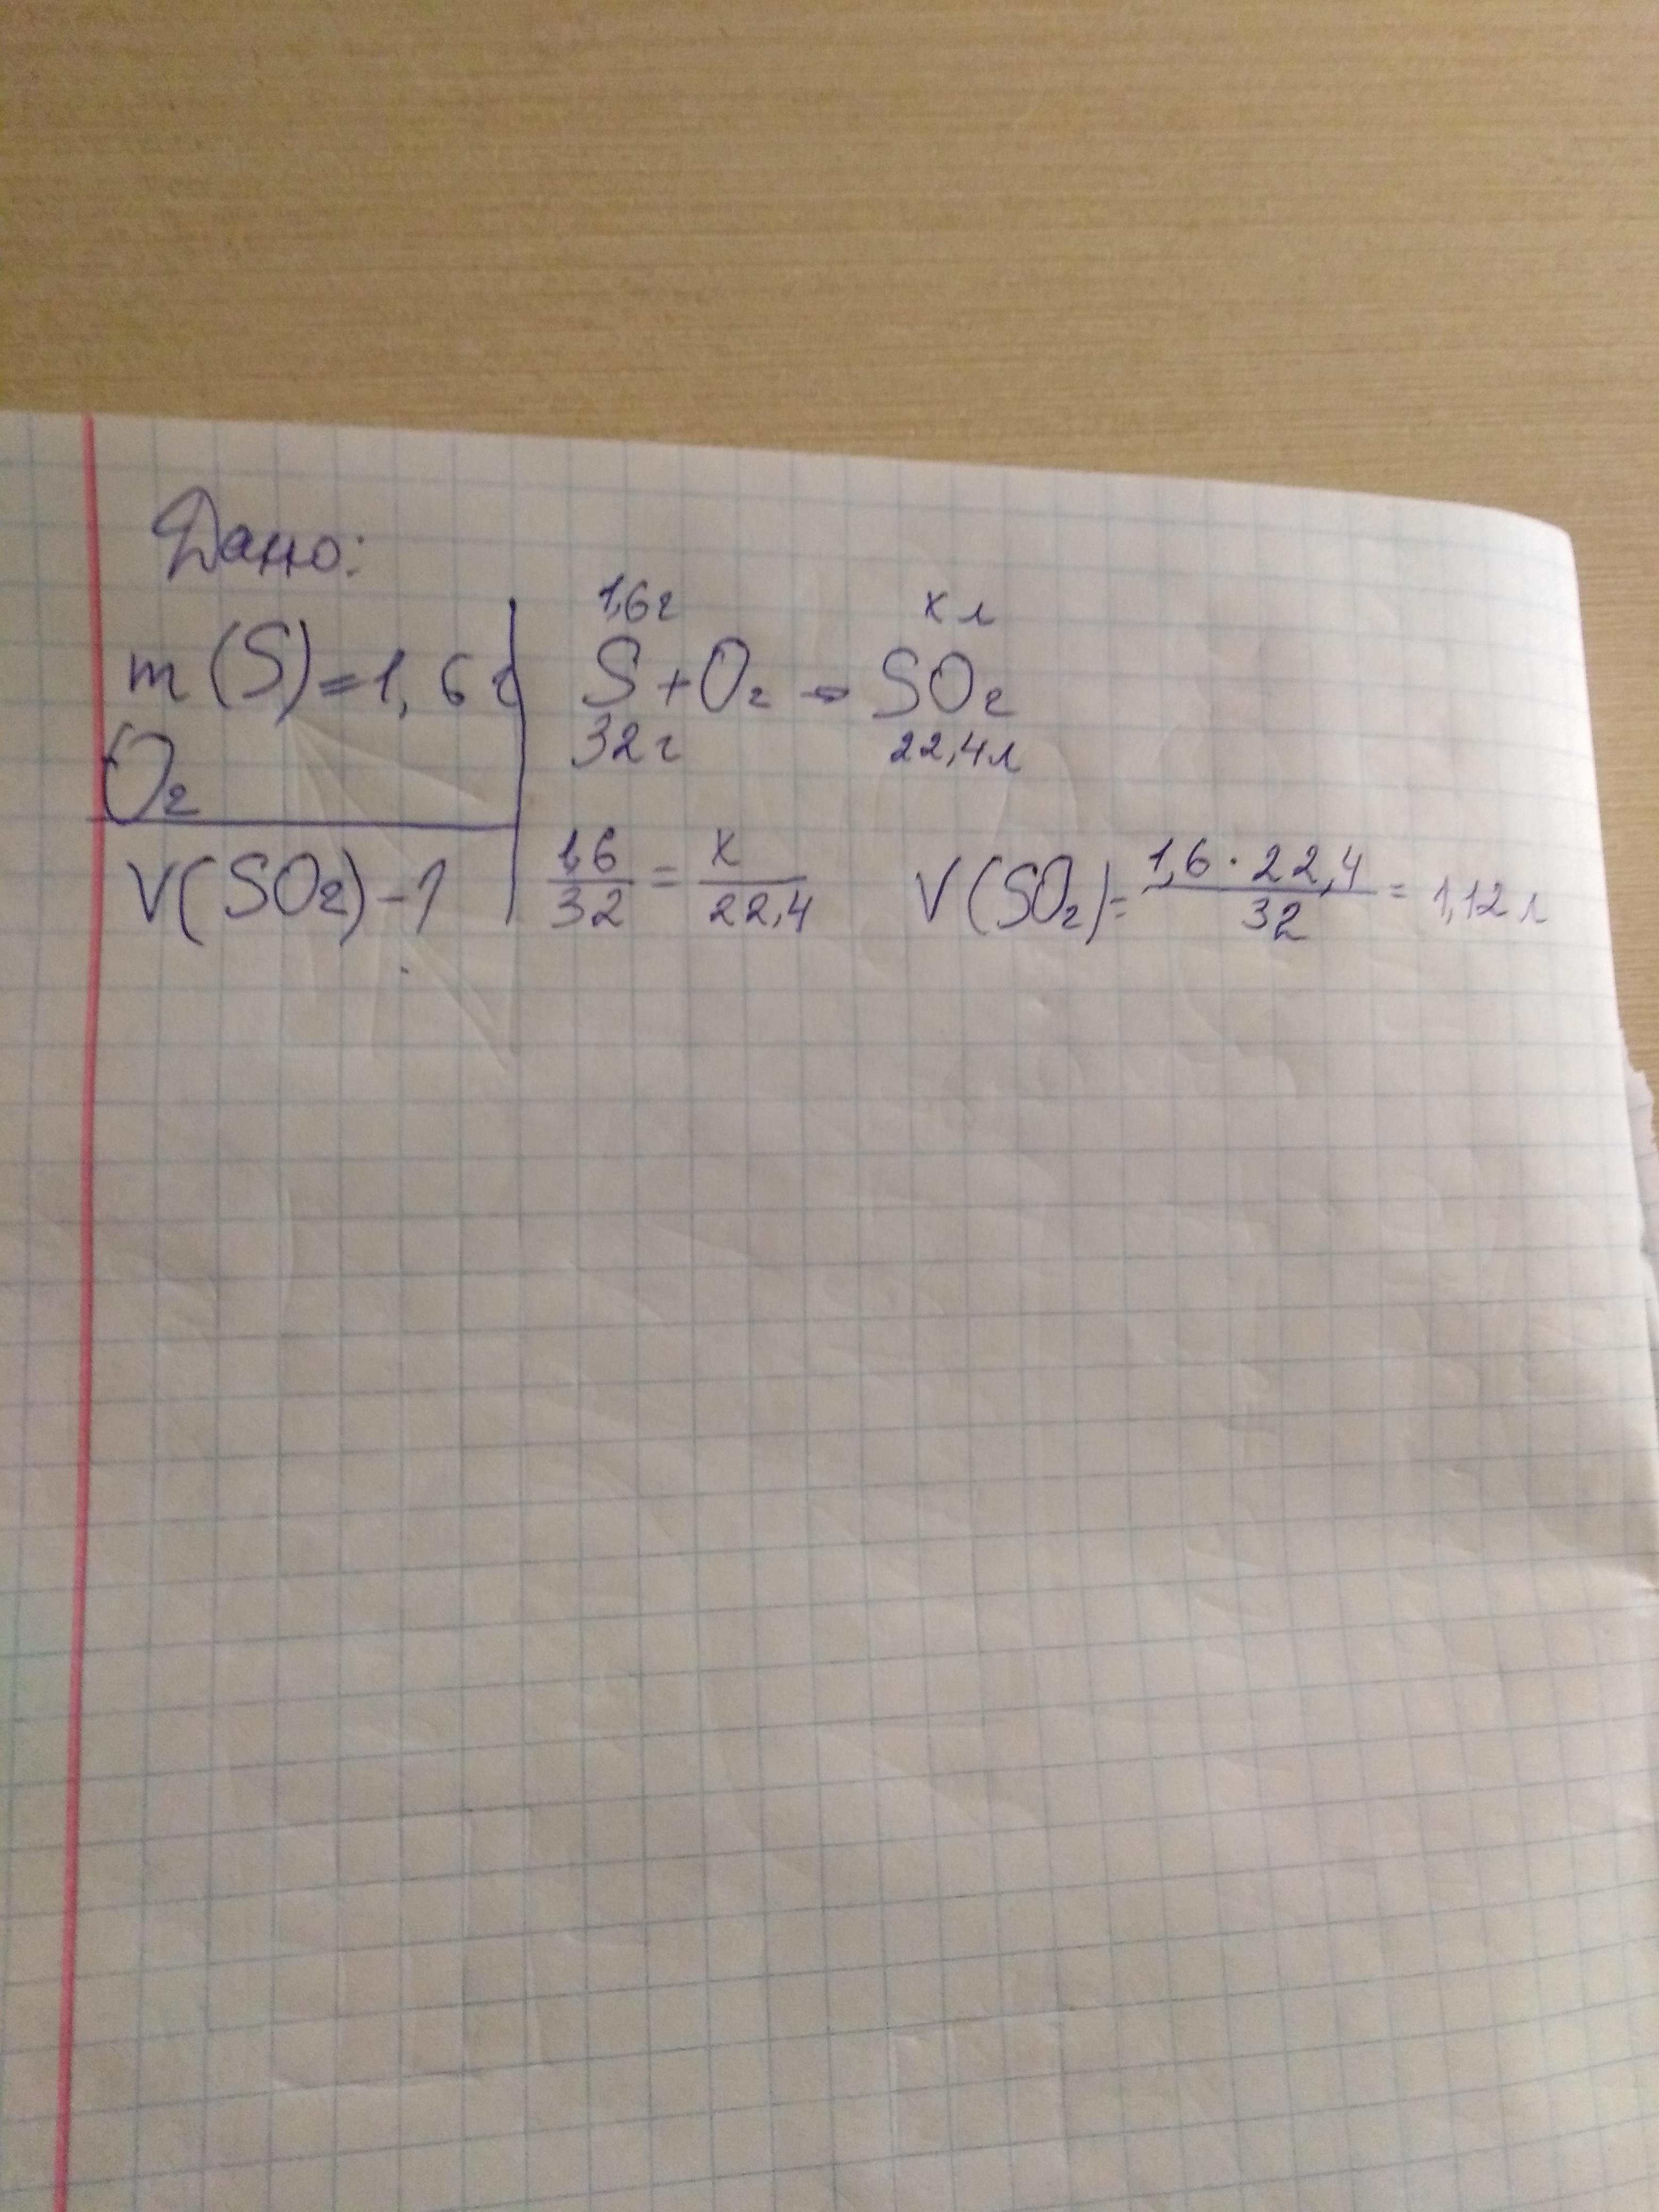 Дано:
m(S)=1,6г
O₂
V(SO₂)-?
1,6г х л
S+O₂→SO₂
32г 22,4л
1,6/32=х/22,4 V(SO₂)=1,6·22,4/32=1,12л